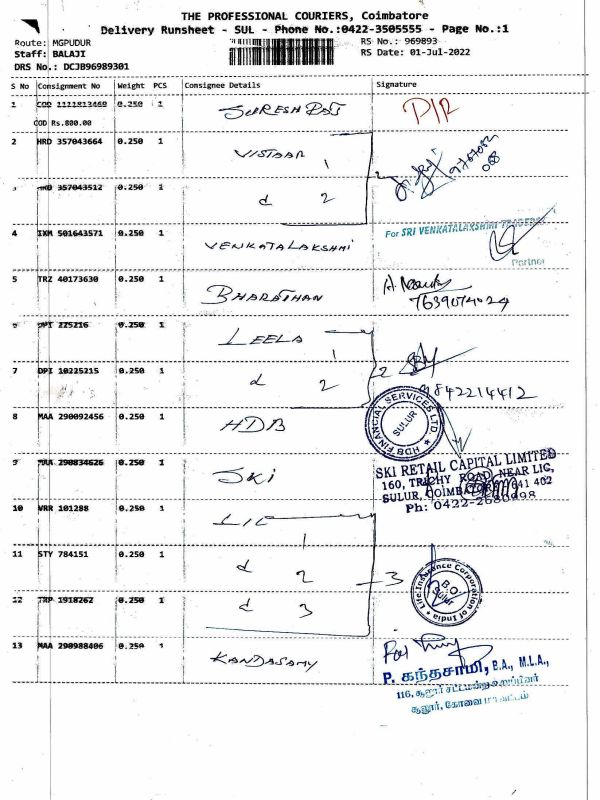 THE PROFESSIONAL COURIERS, Coimbatore
Delivery Runsheet - SUL - Phone No.:0422-3505555 - Page No.:1
Route: MGPUDUR
RS No.: 969893
Staff: BALAJI
RS Date: 01-Jul-2022
DRS No.: DCJB96989301
S No Consignment No Weight PCS Consignee Details Signature
1 COD 1121813460 0.250 1 SURESH
COD Rs.800.00
2 HRD 357043664 0.250 1 VISTAAR 1
3 HRD 357043512 0.250 1 d 2 2
4 IXM 501643571 0.250 1 VENKATALAKSHMI For SRI VENKATALAKSHMI TRADERS
Partner
5 TRZ 40173630 0.250 1 BHARATHAN
7639074024
6 DPI 225216 0.250 1 LEELA 1
7 DPI 10225215 0.250 1 d 2 2
9842214412
8 MAA 290092456 0.250 1 HDB HDB FINANCIAL SERVICES LTD. SULUR
9 MAA 290834626 0.250 1 SKI SKI RETAIL CAPITAL LIMITED
160, TRICHY ROAD, NEAR LIC,
SULUR, COIMBATORE 641 402
Ph: 0422-2680098
10 VRR 101288 0.250 1 LIC 1
11 STY 784151 0.250 1 d 2 3
12 TRP 1918262 0.250 1 d 3 Life Insurance Corporation of India B.O SULUR
13 MAA 290988406 0.250 1 KANDASAMY
P. கந்தசாமி, B.A., M.L.A.,
116, சூலூர் சட்டமன்ற உறுப்பினர்
சூலூர், கோவை மாவட்டம்